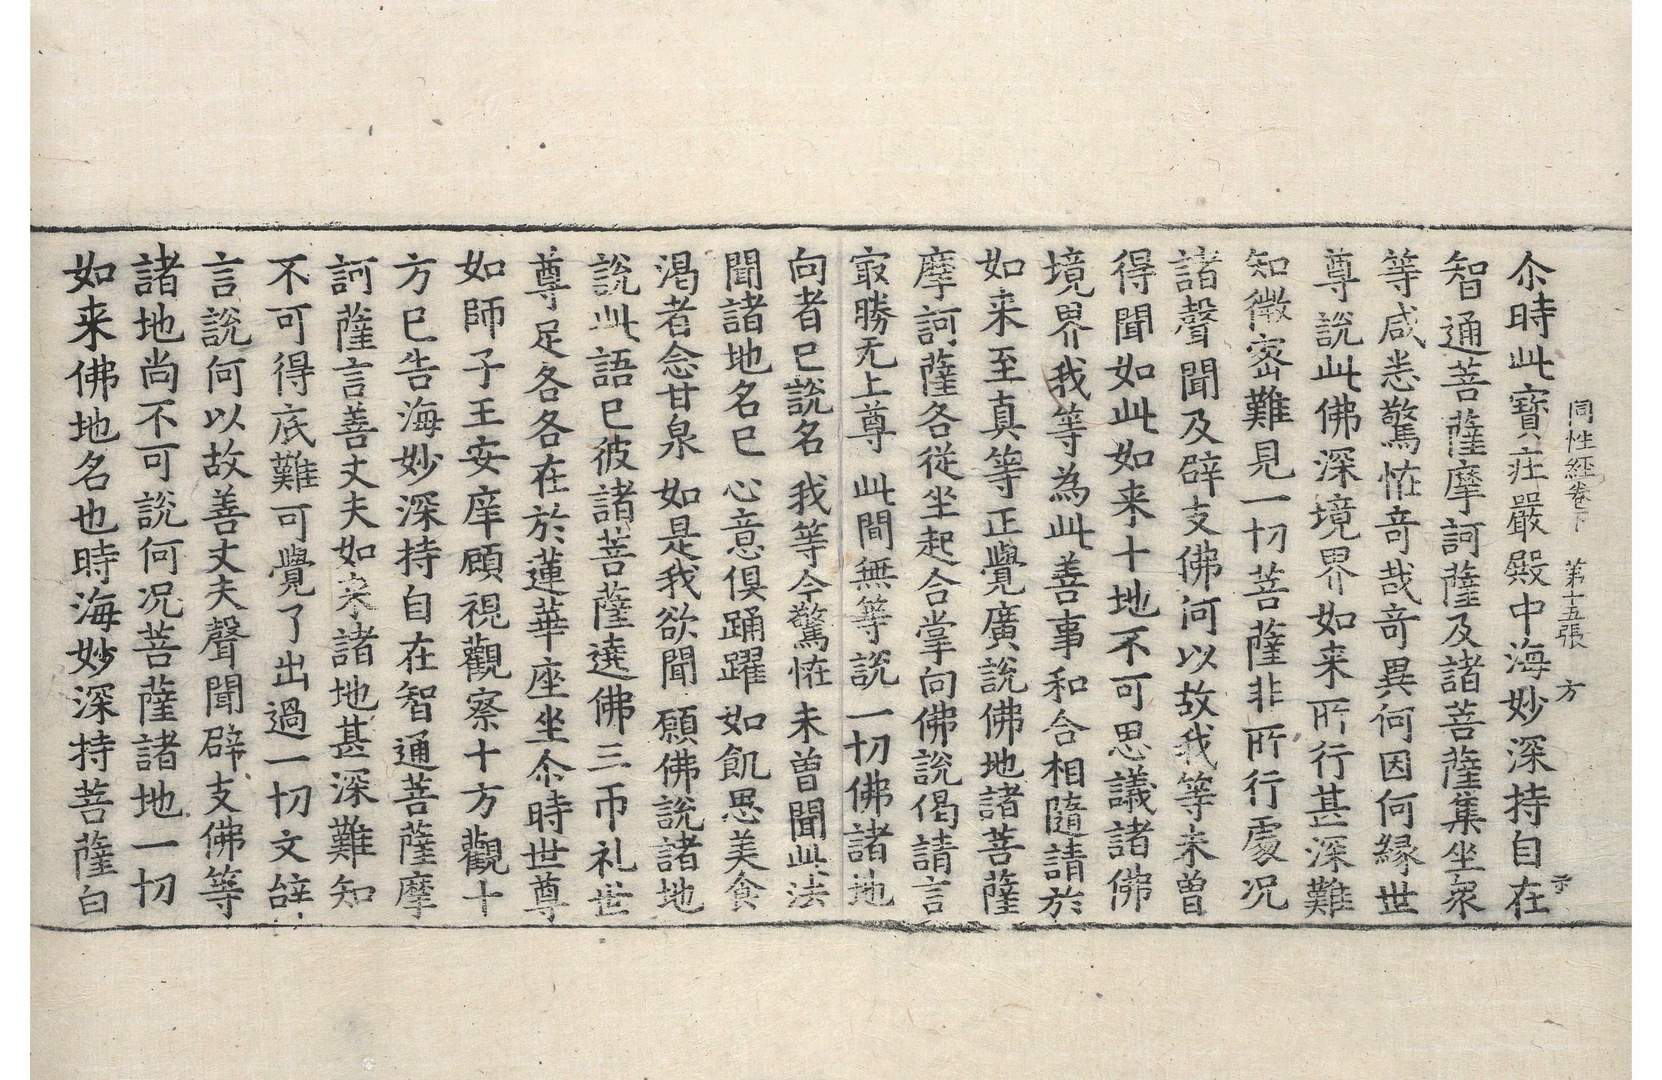 同性經卷下 第十五張 方
尒時此寶庄嚴殿中海妙深持自在
智通菩薩摩訶薩及諸菩薩集坐衆
等咸悉驚恠竒哉竒異何因何縁世
尊說此佛深境界如来所行甚深難
知微密難見一切菩薩非所行處况
諸聲聞及辟支佛何以故我等未曾
得聞如此如来十地不可思議諸佛
境界我等為此善事和合相隨請於
如来至真等正覺廣說佛地諸菩薩
摩訶薩各從坐起合掌向佛說偈請言
最勝无上尊 此間無等說 一切佛諸地
向者已說名 我等今驚恠 未曾聞此法
聞諸地名已 心意俱踊躍 如飢思美食
渴者念甘泉 如是我欲聞 願佛說諸地
說此語已彼諸菩薩遶佛三帀礼世
尊足各各在於蓮華座坐尒時世尊
如師子王安庠顧視觀察十方觀十
方已告海妙深持自在智通菩薩摩
訶薩言善丈夫如来諸地甚深難知
不可得底難可覺了出過一切文辞
言說何以故善丈夫聲聞辟支佛等
諸地尚不可說何况菩薩諸地一切
如来佛地名也時海妙深持菩薩白